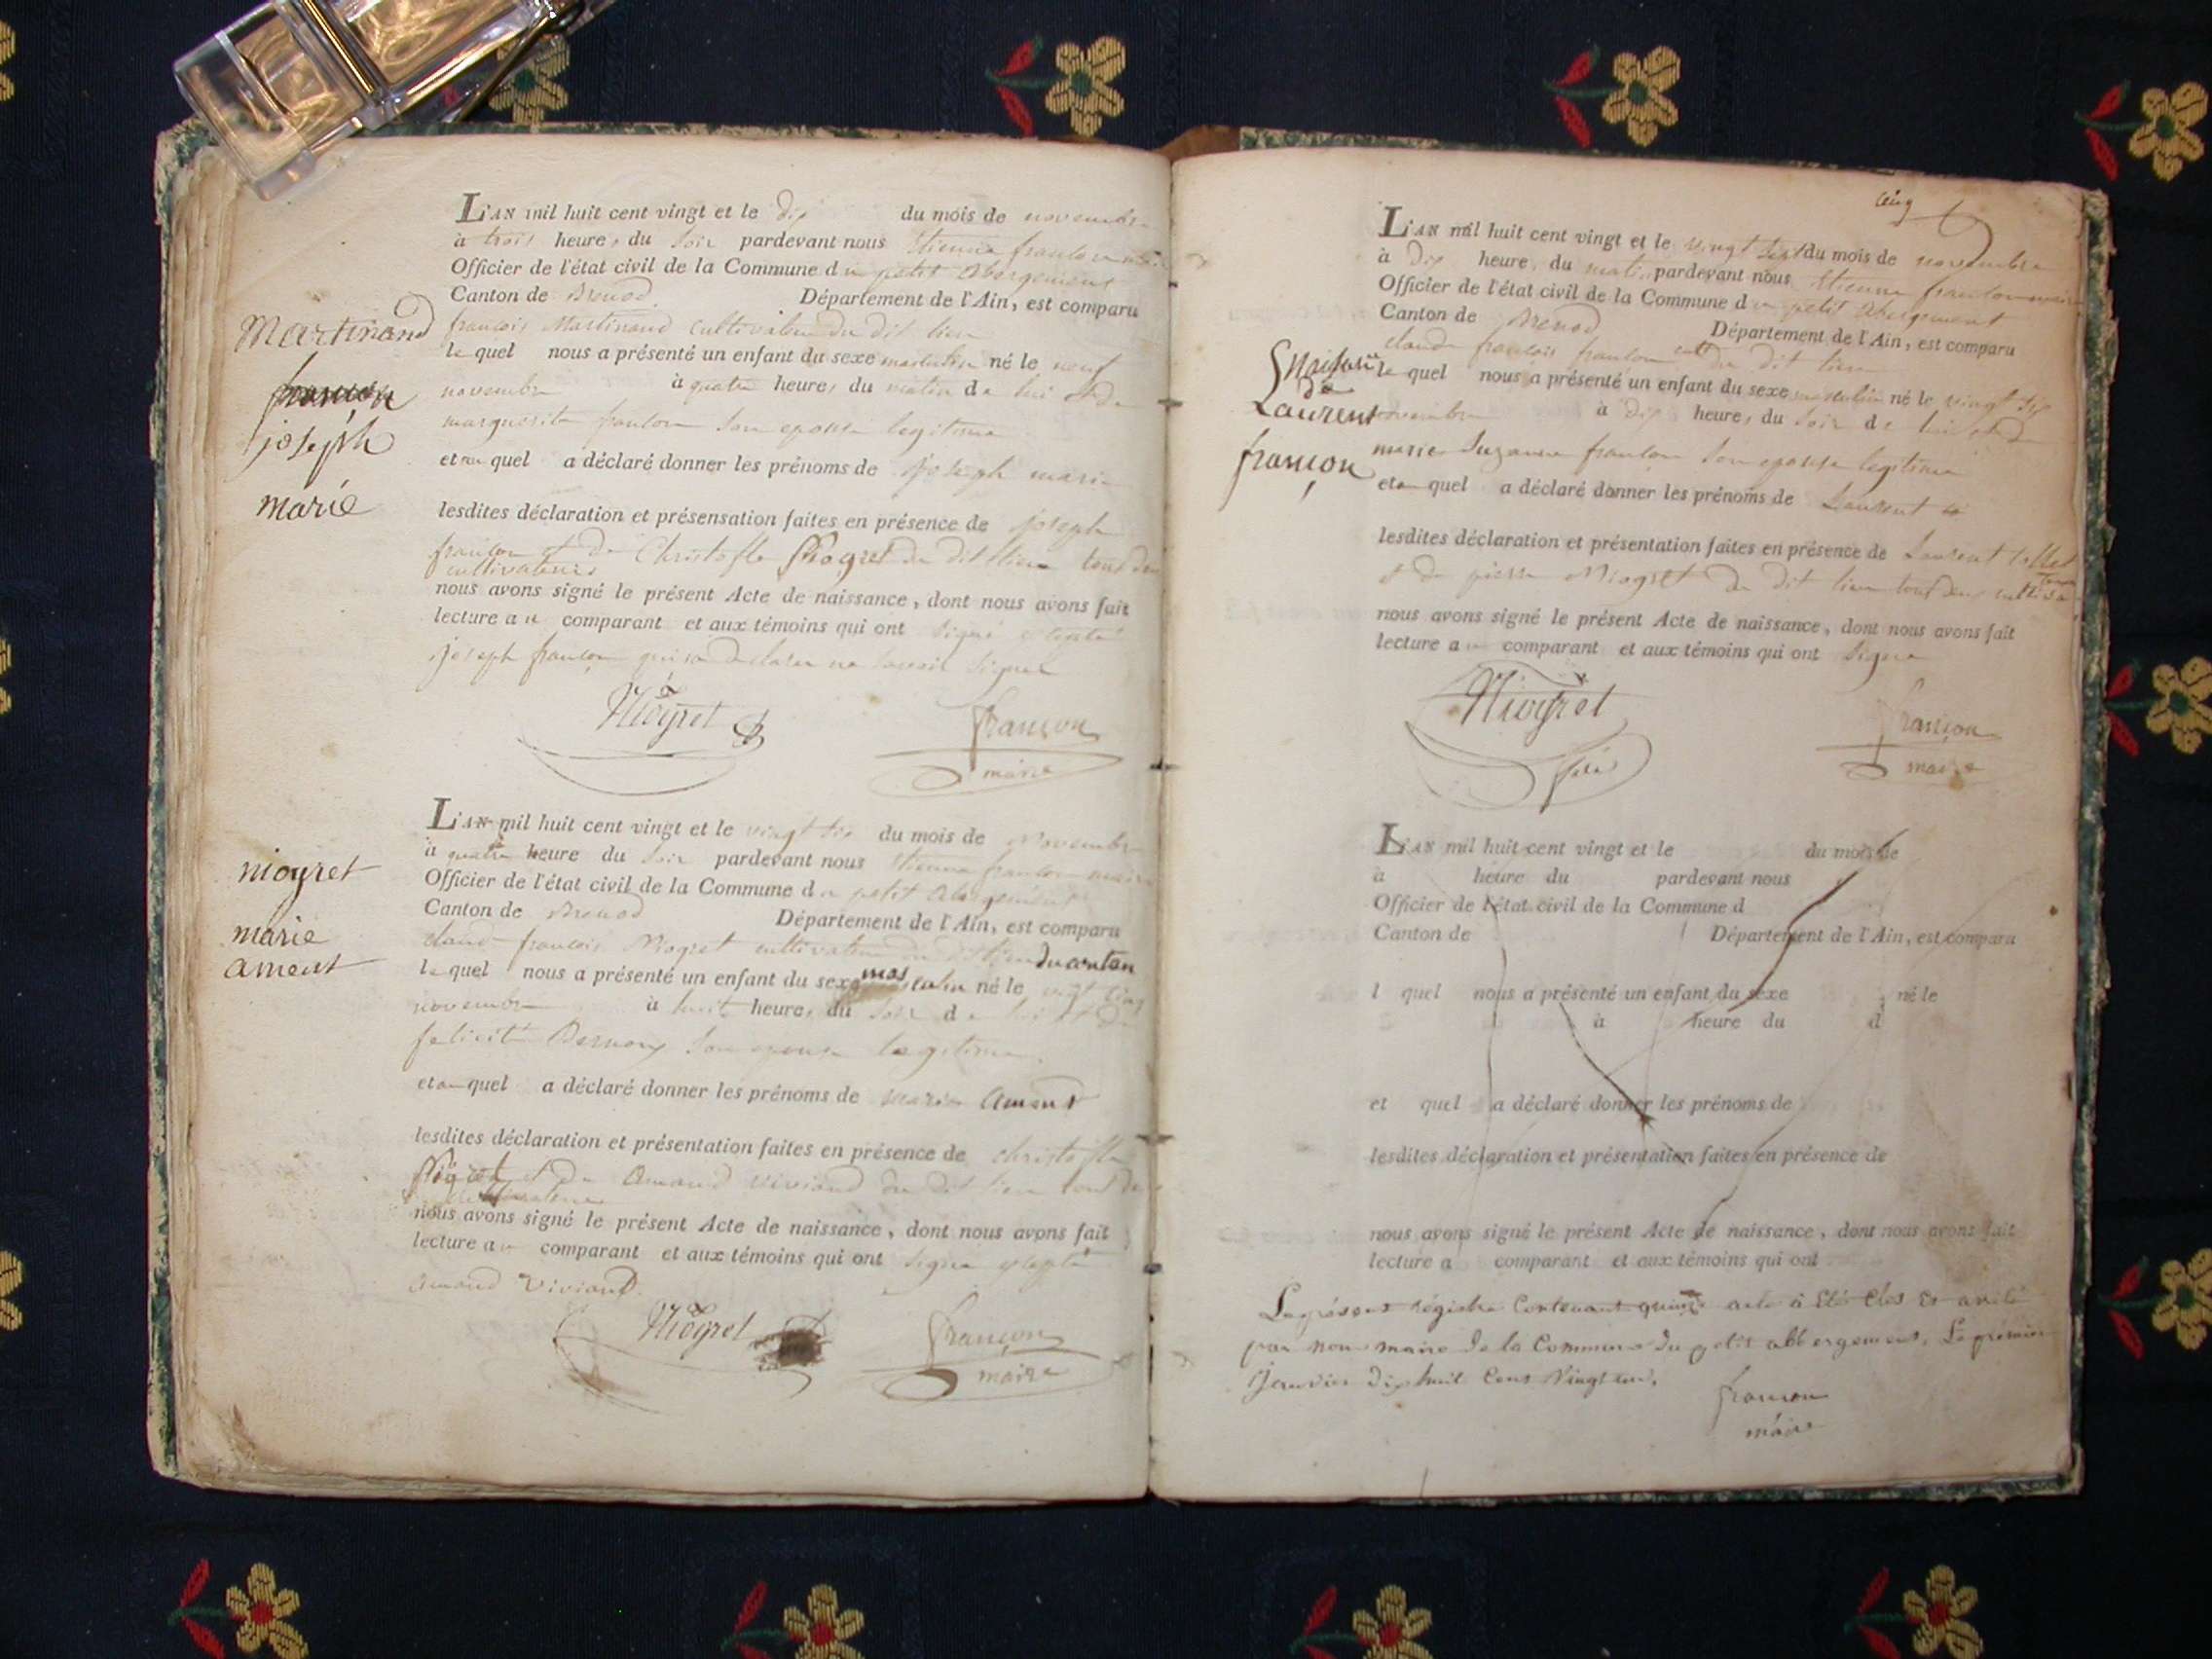 Martinand
françon
joseph
marie
L'AN mil huit cent vingt et le dix du mois de novembre
à trois heures du soir pardevant nous Etienne françon maire
Officier de l'état civil de la Commune du petit abergement
Canton de Brenod Département de l'Ain, est comparu
françois Martinand cultivateur du dit lieu
lequel nous a présenté un enfant du sexe masculin né le neuf
novembre à quatre heures du matin de lui et de
marguerite françon son epouse legitime
et auquel a déclaré donner les prénoms de joseph marie
lesdites déclaration et présensation faites en présence de joseph
françon et de Christofle Niogret du dit lieu tout deux
cultivateurs
nous avons signé le présent Acte de naissance, dont nous avons fait
lecture au comparant et aux témoins qui ont signé excepté
joseph françon qui a declaré ne savoir signer
Niogret françon
maire
niogret
marie
ament
L'AN mil huit cent vingt et le vingt six du mois de novembre
à quatre heure du soir pardevant nous Etienne françon maire
Officier de l'état civil de la Commune du petit abergement
Canton de Brenod Département de l'Ain, est comparu
claude françois Niogret cultivateur du dit lieu du canton
lequel nous a présenté un enfant du sexe masculin né le vingt cinq
novembre à huit heures du soir de lui et de
felicité son epouse legitime
et auquel a déclaré donner les prénoms de marie Ament
lesdites déclaration et présentation faites en présence de christofle
Niogret et de Amand viviand du dit lieu tout deux
cultivateurs
nous avons signé le présent Acte de naissance, dont nous avons fait
lecture au comparant et aux témoins qui ont signé excepté
amand viviand
Niogret françon
maire
cinq
Naissance
de
Laurent
françon
L'AN mil huit cent vingt et le vingt sept du mois de novembre
à dix heures du matin pardevant nous Etienne françon maire
Officier de l'état civil de la Commune du petit abergement
Canton de Brenod Département de l'Ain, est comparu
claude françois françon cult du dit lieu
lequel nous a présenté un enfant du sexe masculin né le vingt six
novembre à dix heures du soir de lui et de
marie Suzanne françon son epouse legitime
et auquel a déclaré donner les prénoms de Laurent
lesdites déclaration et présentation faites en présence de Laurent
et de pierre Niogret du dit lieu tout deux
nous avons signé le présent Acte de naissance, dont nous avons fait
lecture au comparant et aux témoins qui ont signé
Niogret françon
maire
L'AN mil huit cent vingt et le du mois de
à heure du pardevant nous
Officier de l'état civil de la Commune d
Canton de Département de l'Ain, est comparu
l quel nous a présenté un enfant du sexe né le
à heure du d
et quel a déclaré donner les prénoms de
lesdites déclaration et présentation faites en présence de
nous avons signé le présent Acte de naissance, dont nous avons fait
lecture a comparant et aux témoins qui ont
Le présent régistre Contenant quinze acte à été Clos et arrêté
par nous maire de la Commune du petit abbergement, Le premier
janvier dix huit Cent Vingt un,
françon
maire